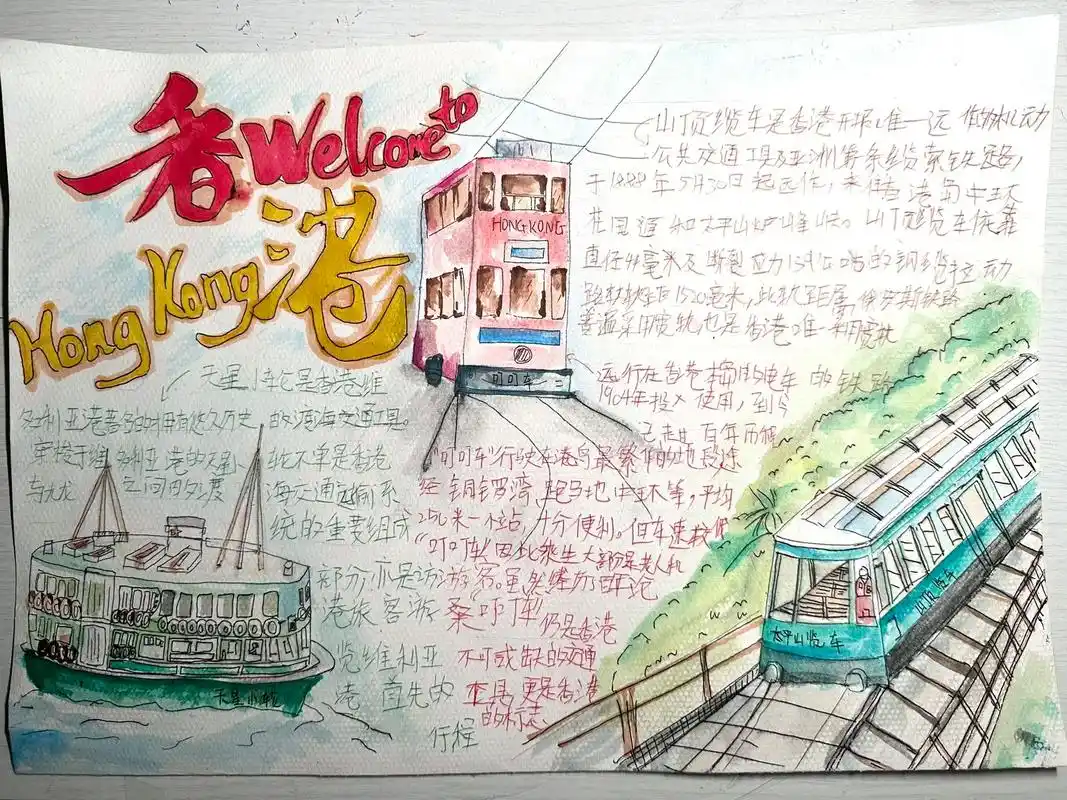 香 Welcome to
Hong Kong 港
HONG KONG
叮叮车
山顶缆车是香港开 唯一运 作的机动
公共交通工具及亚洲第一条缆索铁路,
于1888年5月30日起运 , 来往香港岛中环
花园道和太平山炉峰峡。山顶缆车依靠
直径44毫米及断裂应力 公吨的钢缆拉动
路轨轨距1520毫米,此轨距属俄罗斯铁路
普遍采用宽轨也是香港唯一采用宽轨
的铁路
运行在香港 的电车
1904年投入使用,到今
已走过百年历程
"叮叮车"行驶在港岛最繁 的地段途
经铜锣湾 跑马地 中环等,平均
250米一个站,十分便利。但车速较
"叮叮车"因此乘坐大部分是老人和
游客。虽然经历百年沧
桑叮叮车仍是香港
不可或缺的交通
工具,更是香港
的标志
天星小轮是香港维
多利亚港著名的拥有悠久历史的渡海交通工具。
穿梭于维多利亚港的天星小轮不单是香港
与九龙之间的 海交通运输系
统的重要组成
部分,亦是访
港旅客游
览维利亚
港首先的
行程
天星小轮
太平山缆车
山顶缆车